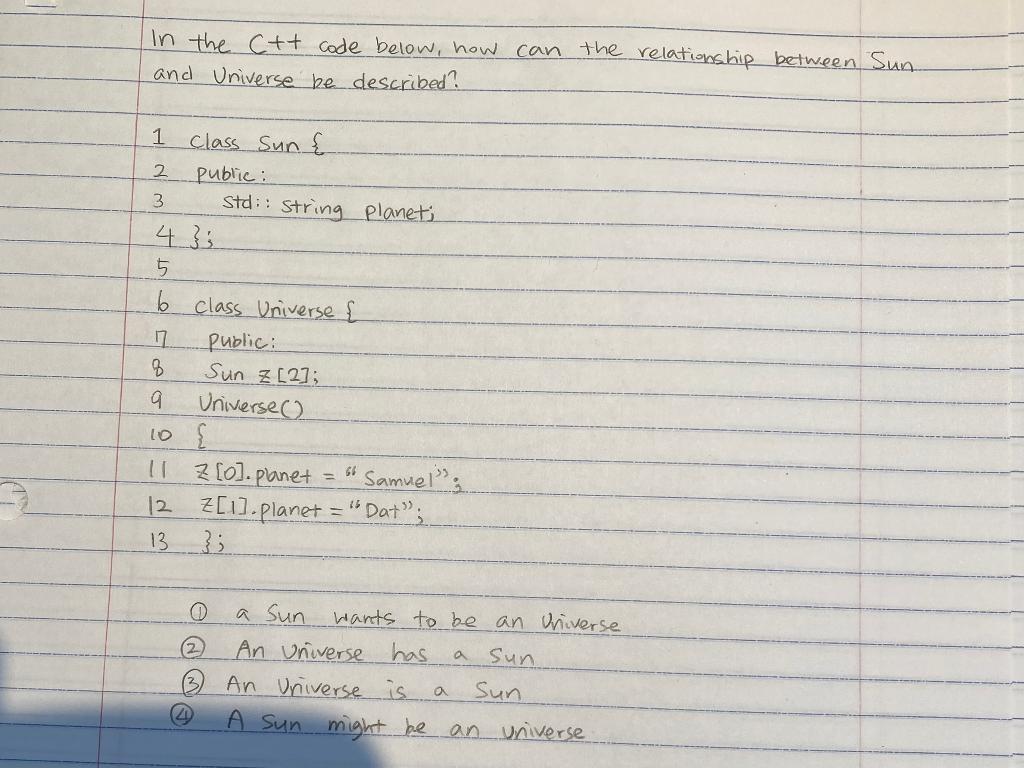 In the C++ code below, how can the relationship between Sun
and Universe be described?
1 class Sun {
2 public:
3 std::string planet;
4 };
5
6 class Universe {
7 public:
8 Sun z[2];
9 Universe()
10 {
11 z[0].planet = "Samuel";
12 z[1].planet = "Dat";
13 };
① a Sun wants to be an Universe
② An Universe has a Sun
③ An Universe is a Sun
④ A Sun might be an universe